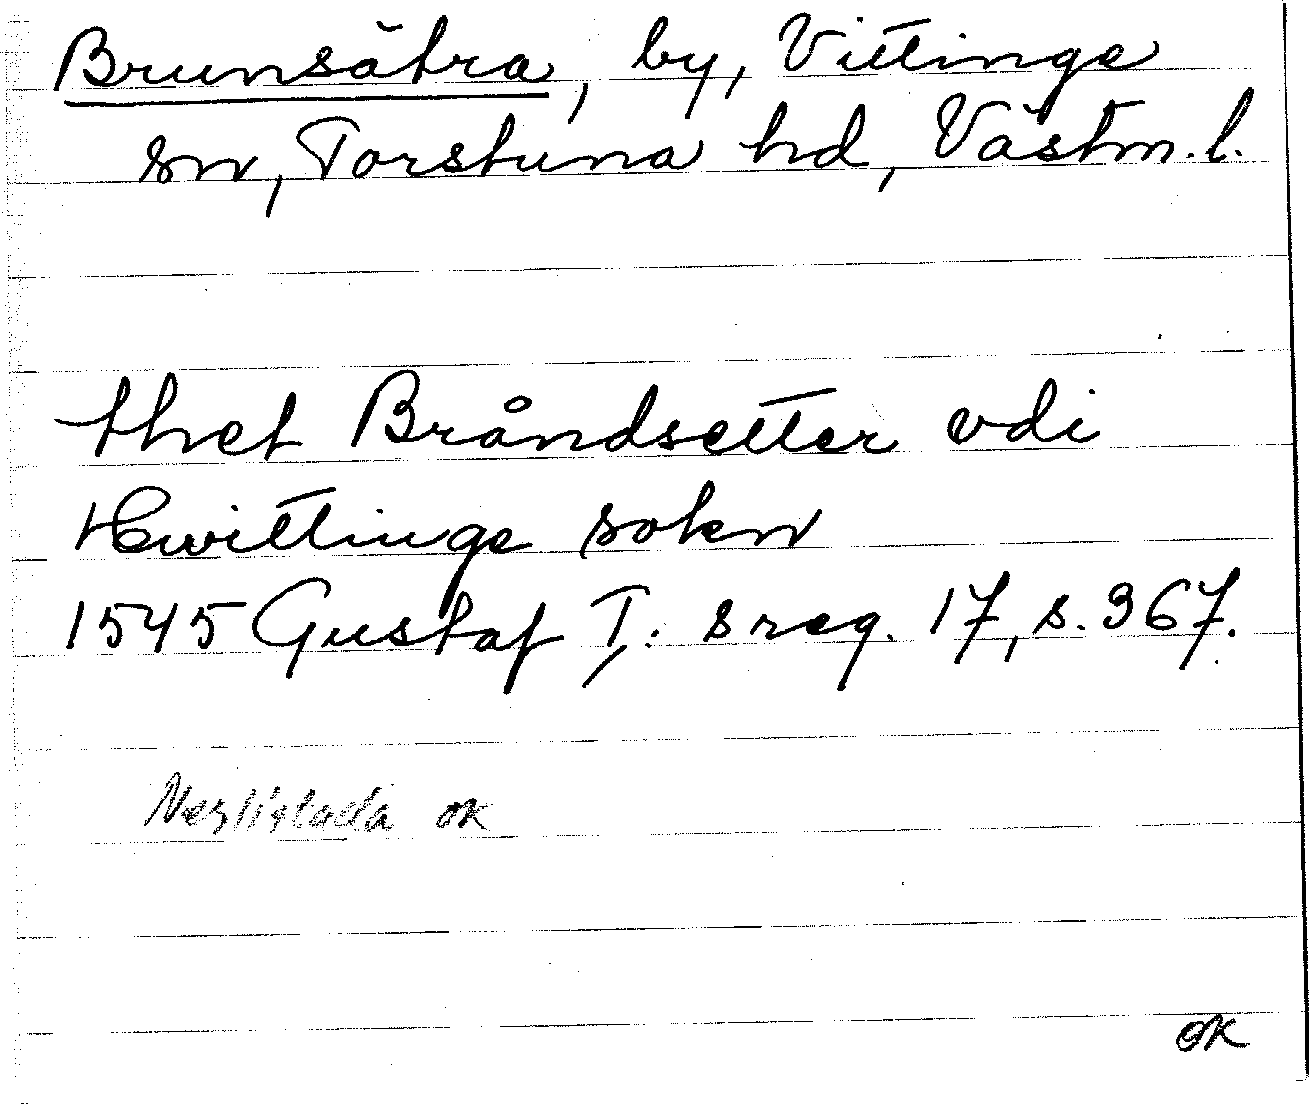 Brunsätra, by, Vittinge
sn, Torstuna hd, Västm. l.
thet Bråndsetter vdi
Hwittinge sokn
1545 Gustaf I: s reg. 17, s. 367.
ok
ok